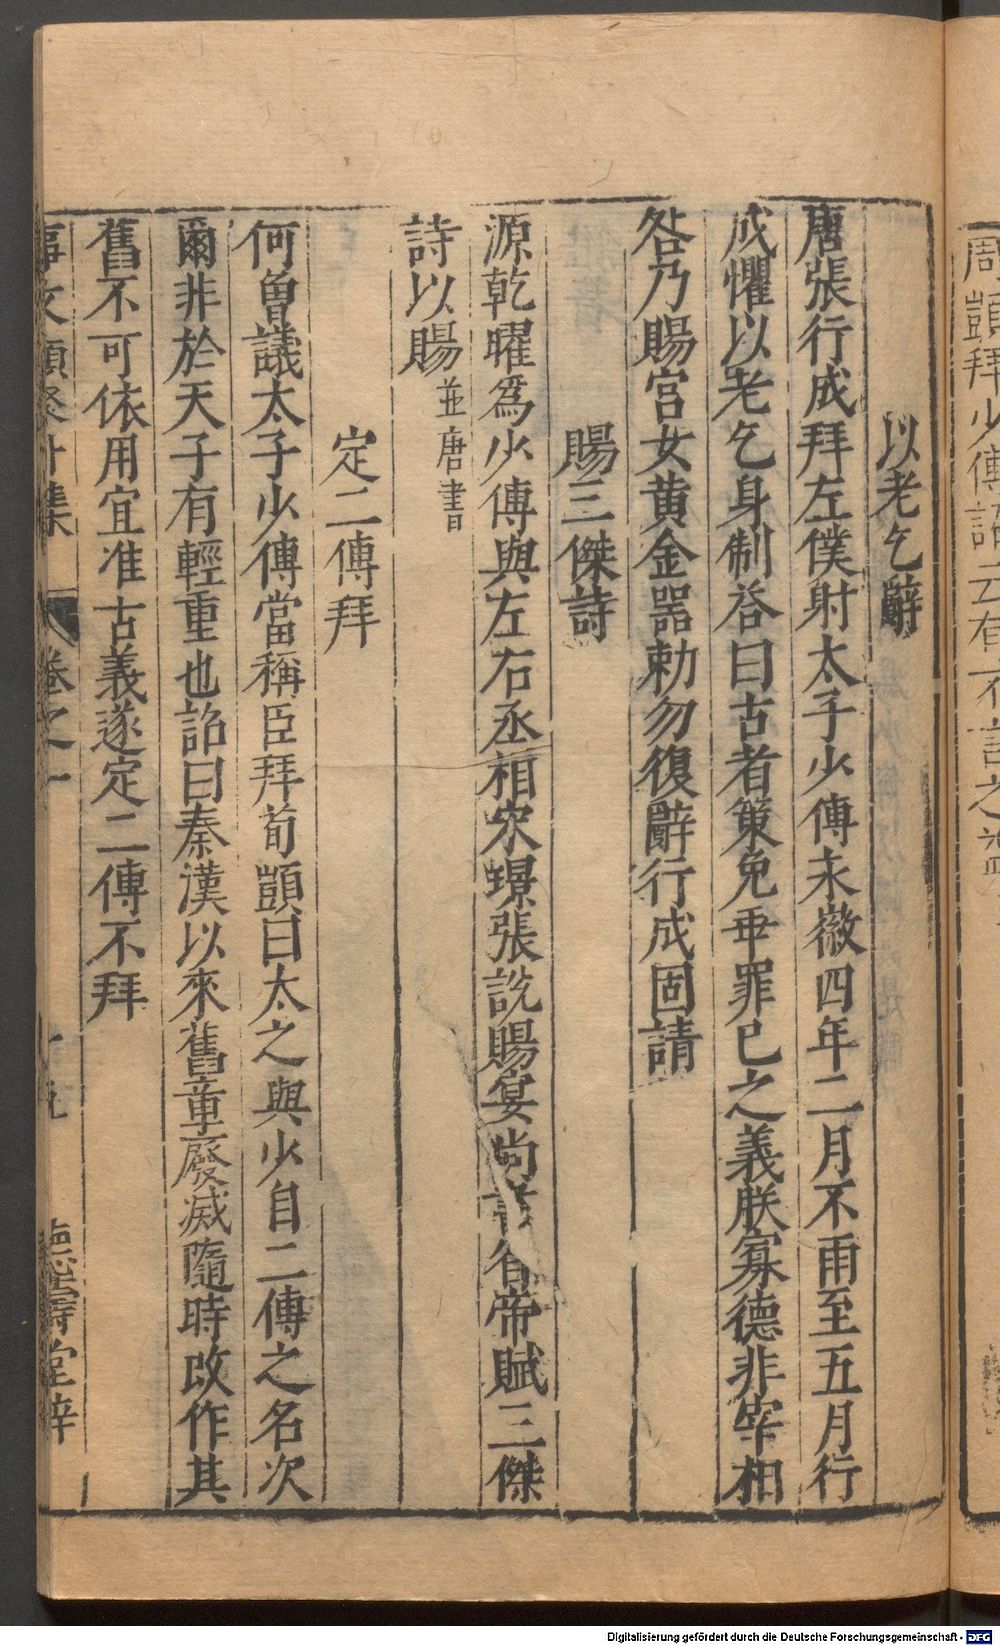 以老乞辭
唐張行成拜左僕射太子少傅永徽四年二月不雨至五月行
成懼以老乞身制答曰古者策免乖罪已之義朕寡德非宰相
咎乃賜宮女黃金器勅勿復辭行成固請
賜三傑詩
源乾曜爲少傅與左右丞相宋璟張說賜宴尚書省帝賦三傑
詩以賜並唐書
定二傅拜
何魯議太子少傅當稱臣拜荀顗曰太之與少自二傅之名次
爾非於天子有輕重也詔曰秦漢以來舊章廢滅隨時改作其
舊不可依用宜准古義遂定二傅不拜
事文類聚 集 卷之一 十九 德壽堂梓
周顗拜少傅詔云有不言之益
Digitalisierung gefördert durch die Deutsche Forschungsgemeinschaft - DFG